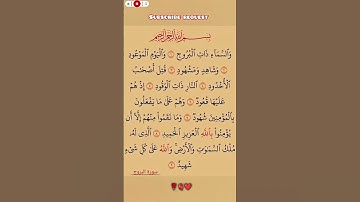 SUBSCRIBE REQUEST
بِسْمِ اللَّهِ الرَّحْمَٰنِ الرَّحِيمِ
وَالسَّمَآءِ ذَاتِ الْبُرُوجِ ۝ وَالْيَوْمِ الْمَوْعُودِ
۝ وَشَاهِدٍ وَمَشْهُودٍ ۝ قُتِلَ أَصْحَٰبُ
الْأُخْدُودِ ۝ النَّارِ ذَاتِ الْوَقُودِ ۝ إِذْ هُمْ
عَلَيْهَا قُعُودٌ ۝ وَهُمْ عَلَىٰ مَا يَفْعَلُونَ
بِالْمُؤْمِنِينَ شُهُودٌ ۝ وَمَا نَقَمُوا۟ مِنْهُمْ إِلَّآ أَن
يُؤْمِنُوا۟ بِاللَّهِ الْعَزِيزِ الْحَمِيدِ ۝ الَّذِى لَهُۥ
مُلْكُ السَّمَٰوَٰتِ وَالْأَرْضِ وَاللَّهُ عَلَىٰ كُلِّ شَىْءٍ
شَهِيدٌ ۝
سورة البروج